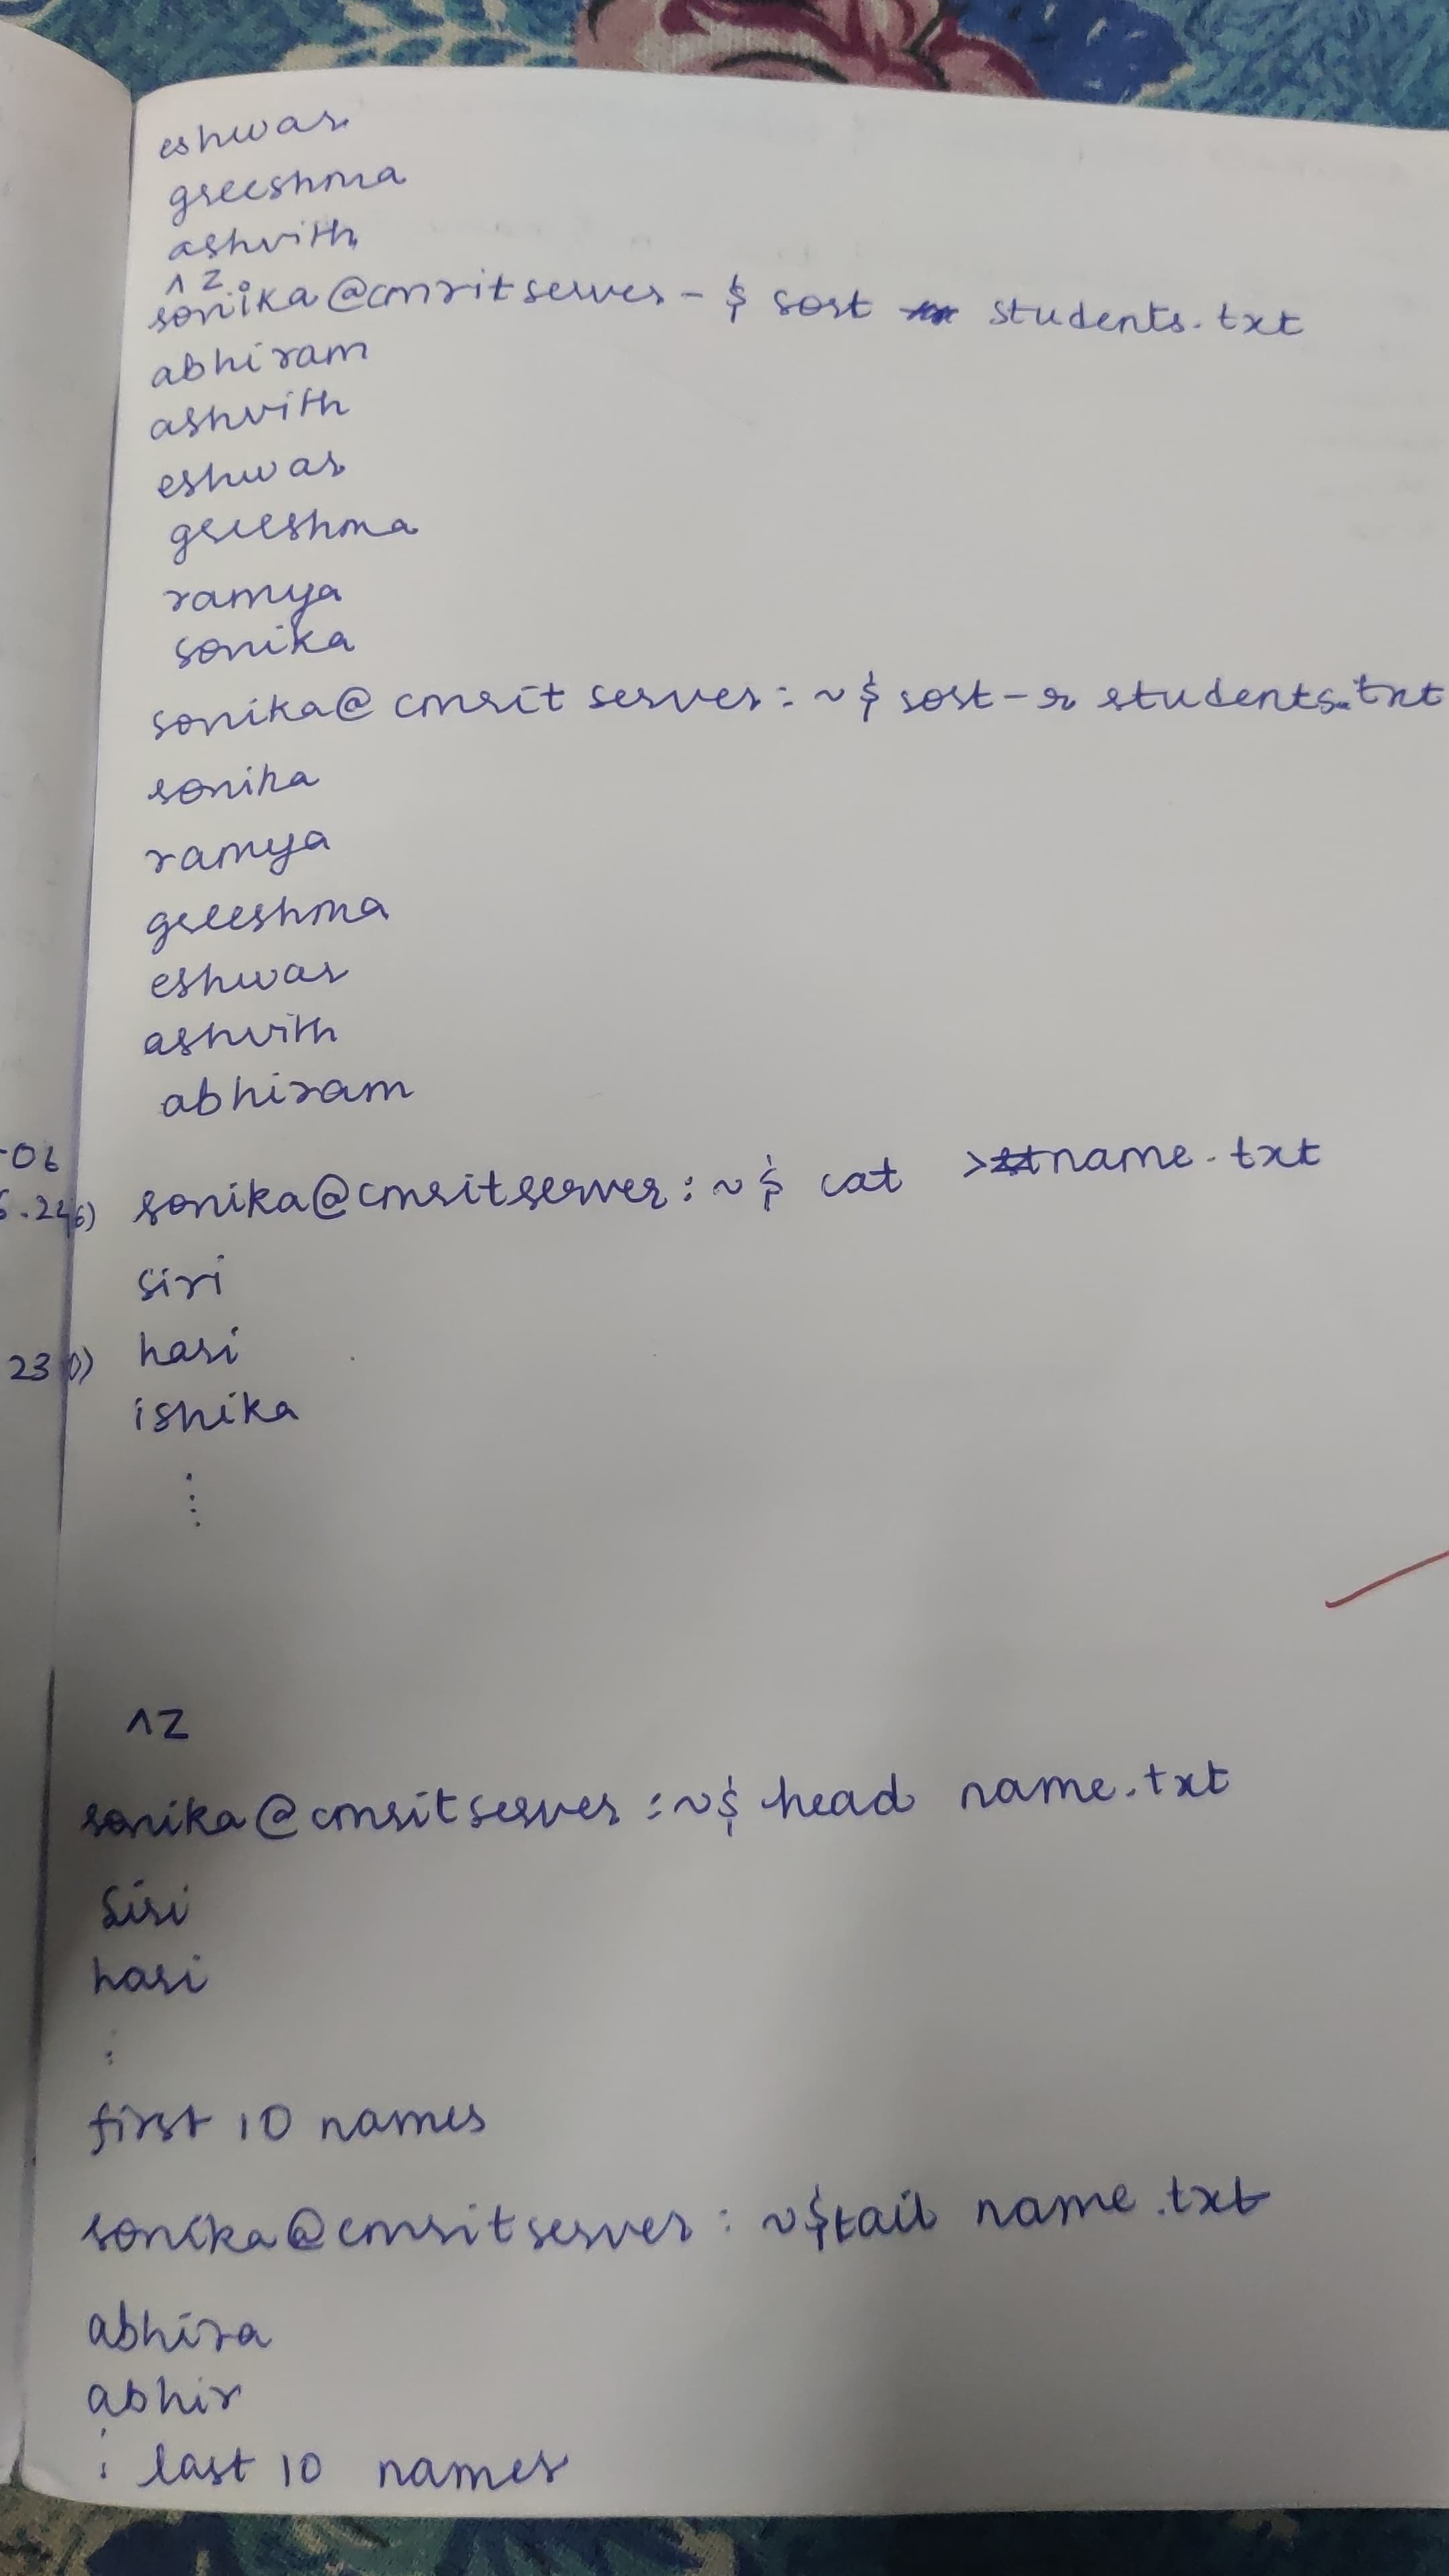 eshwar
greeshma
ashvith
^Z
sonika@cmritserver-$ sort students.txt
abhiram
ashvith
eshwar
greeshma
ramya
sonika
sonika@cmritserver:~$ sort-r students.txt
sonika
ramya
greeshma
eshwar
ashvith
abhiram
-06
6) sonika@cmritserver:~$ cat >name.txt
siri
23 hari
ishika
⋮
^Z
sonika@cmritserver:~$ head name.txt
Siri
hari
:
first 10 names
sonika@cmritserver:~$tail name.txt
abhira
abhir
: last 10 names